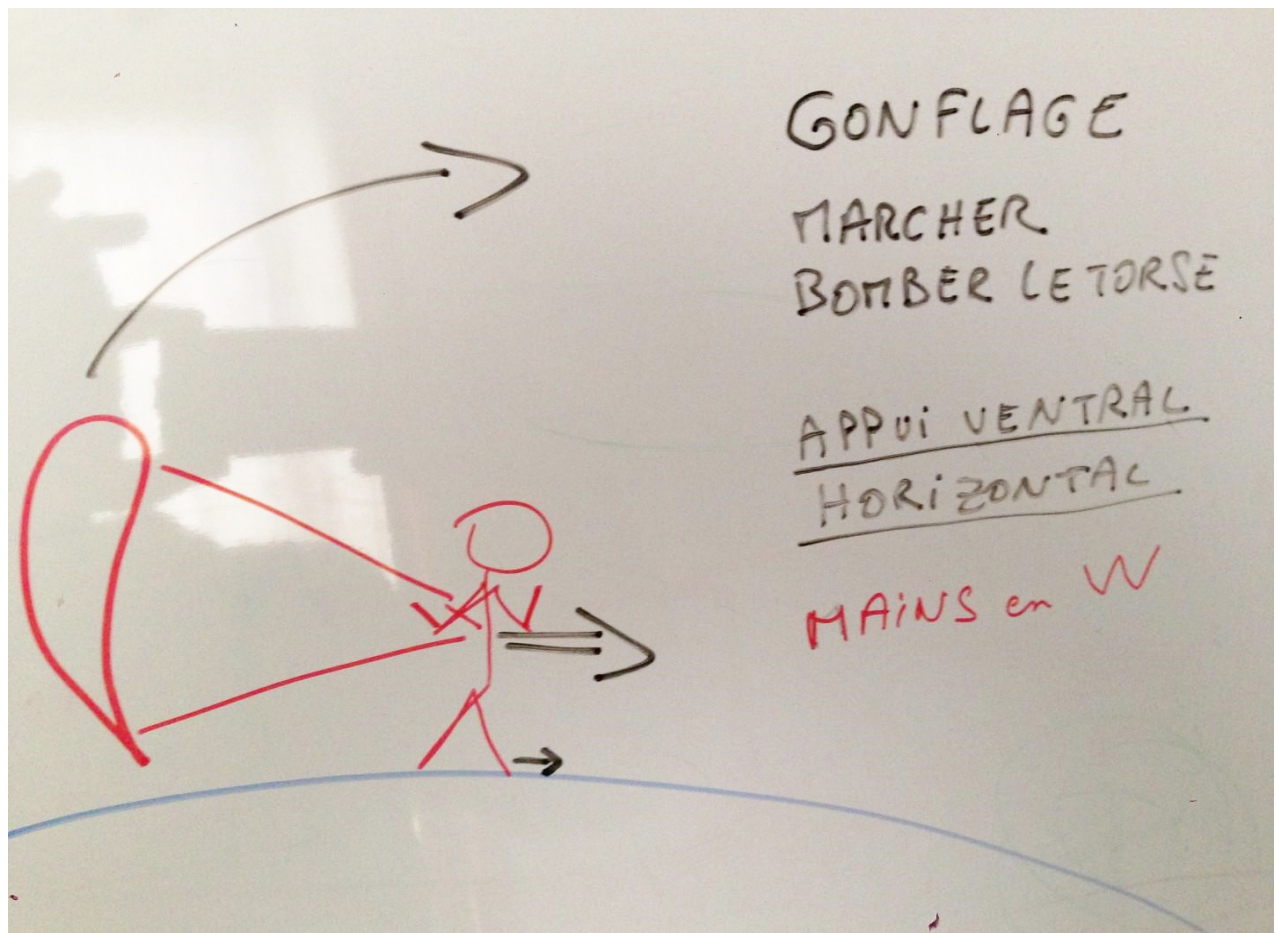 GONFLAGE
MARCHER
BOMBER LE TORSE
APPUi VENTRAL
HORiZONTAL
MAiNS en W